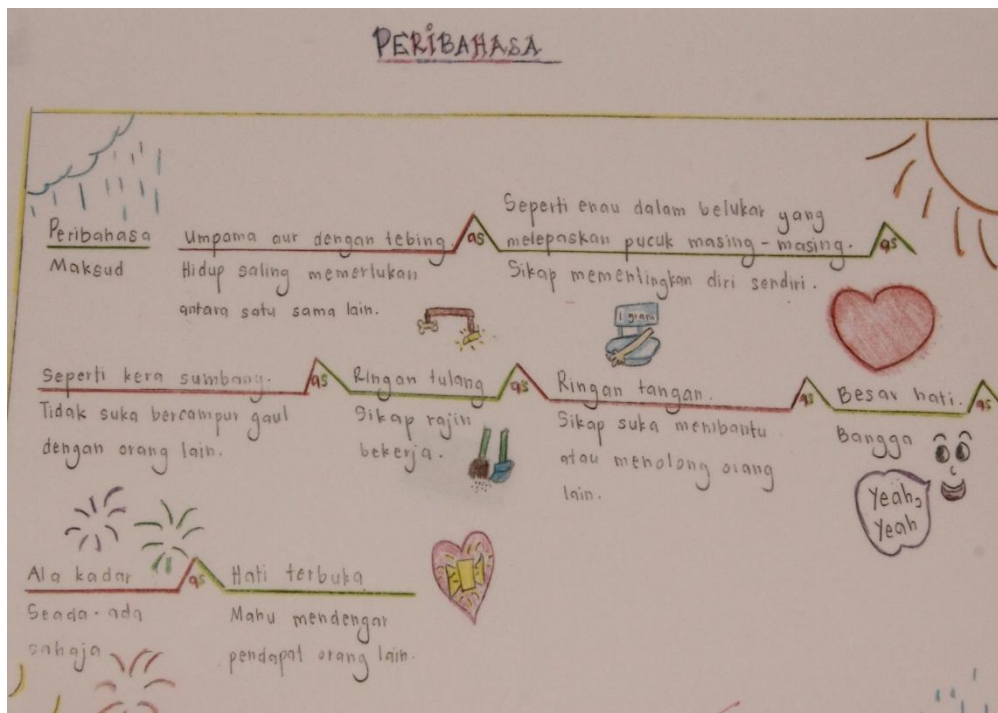 PERIBAHASA
Peribahasa
Maksud
Umpama aur dengan tebing.
Hidup saling memerlukan
antara satu sama lain.
as
Seperti enau dalam belukar yang
melepaskan pucuk masing-masing.
Sikap mementingkan diri sendiri.
as
1 gram
Seperti kera sumbang.
Tidak suka bercampur gaul
dengan orang lain.
as
Ringan tulang
Sikap rajin
bekerja.
as
Ringan tangan.
Sikap suka membantu
atau menolong orang
lain.
as
Besar hati.
Bangga
as
Yeah,
Yeah
Ala kadar
Seada-ada
sahaja
as
Hati terbuka
Mahu mendengar
pendapat orang lain.